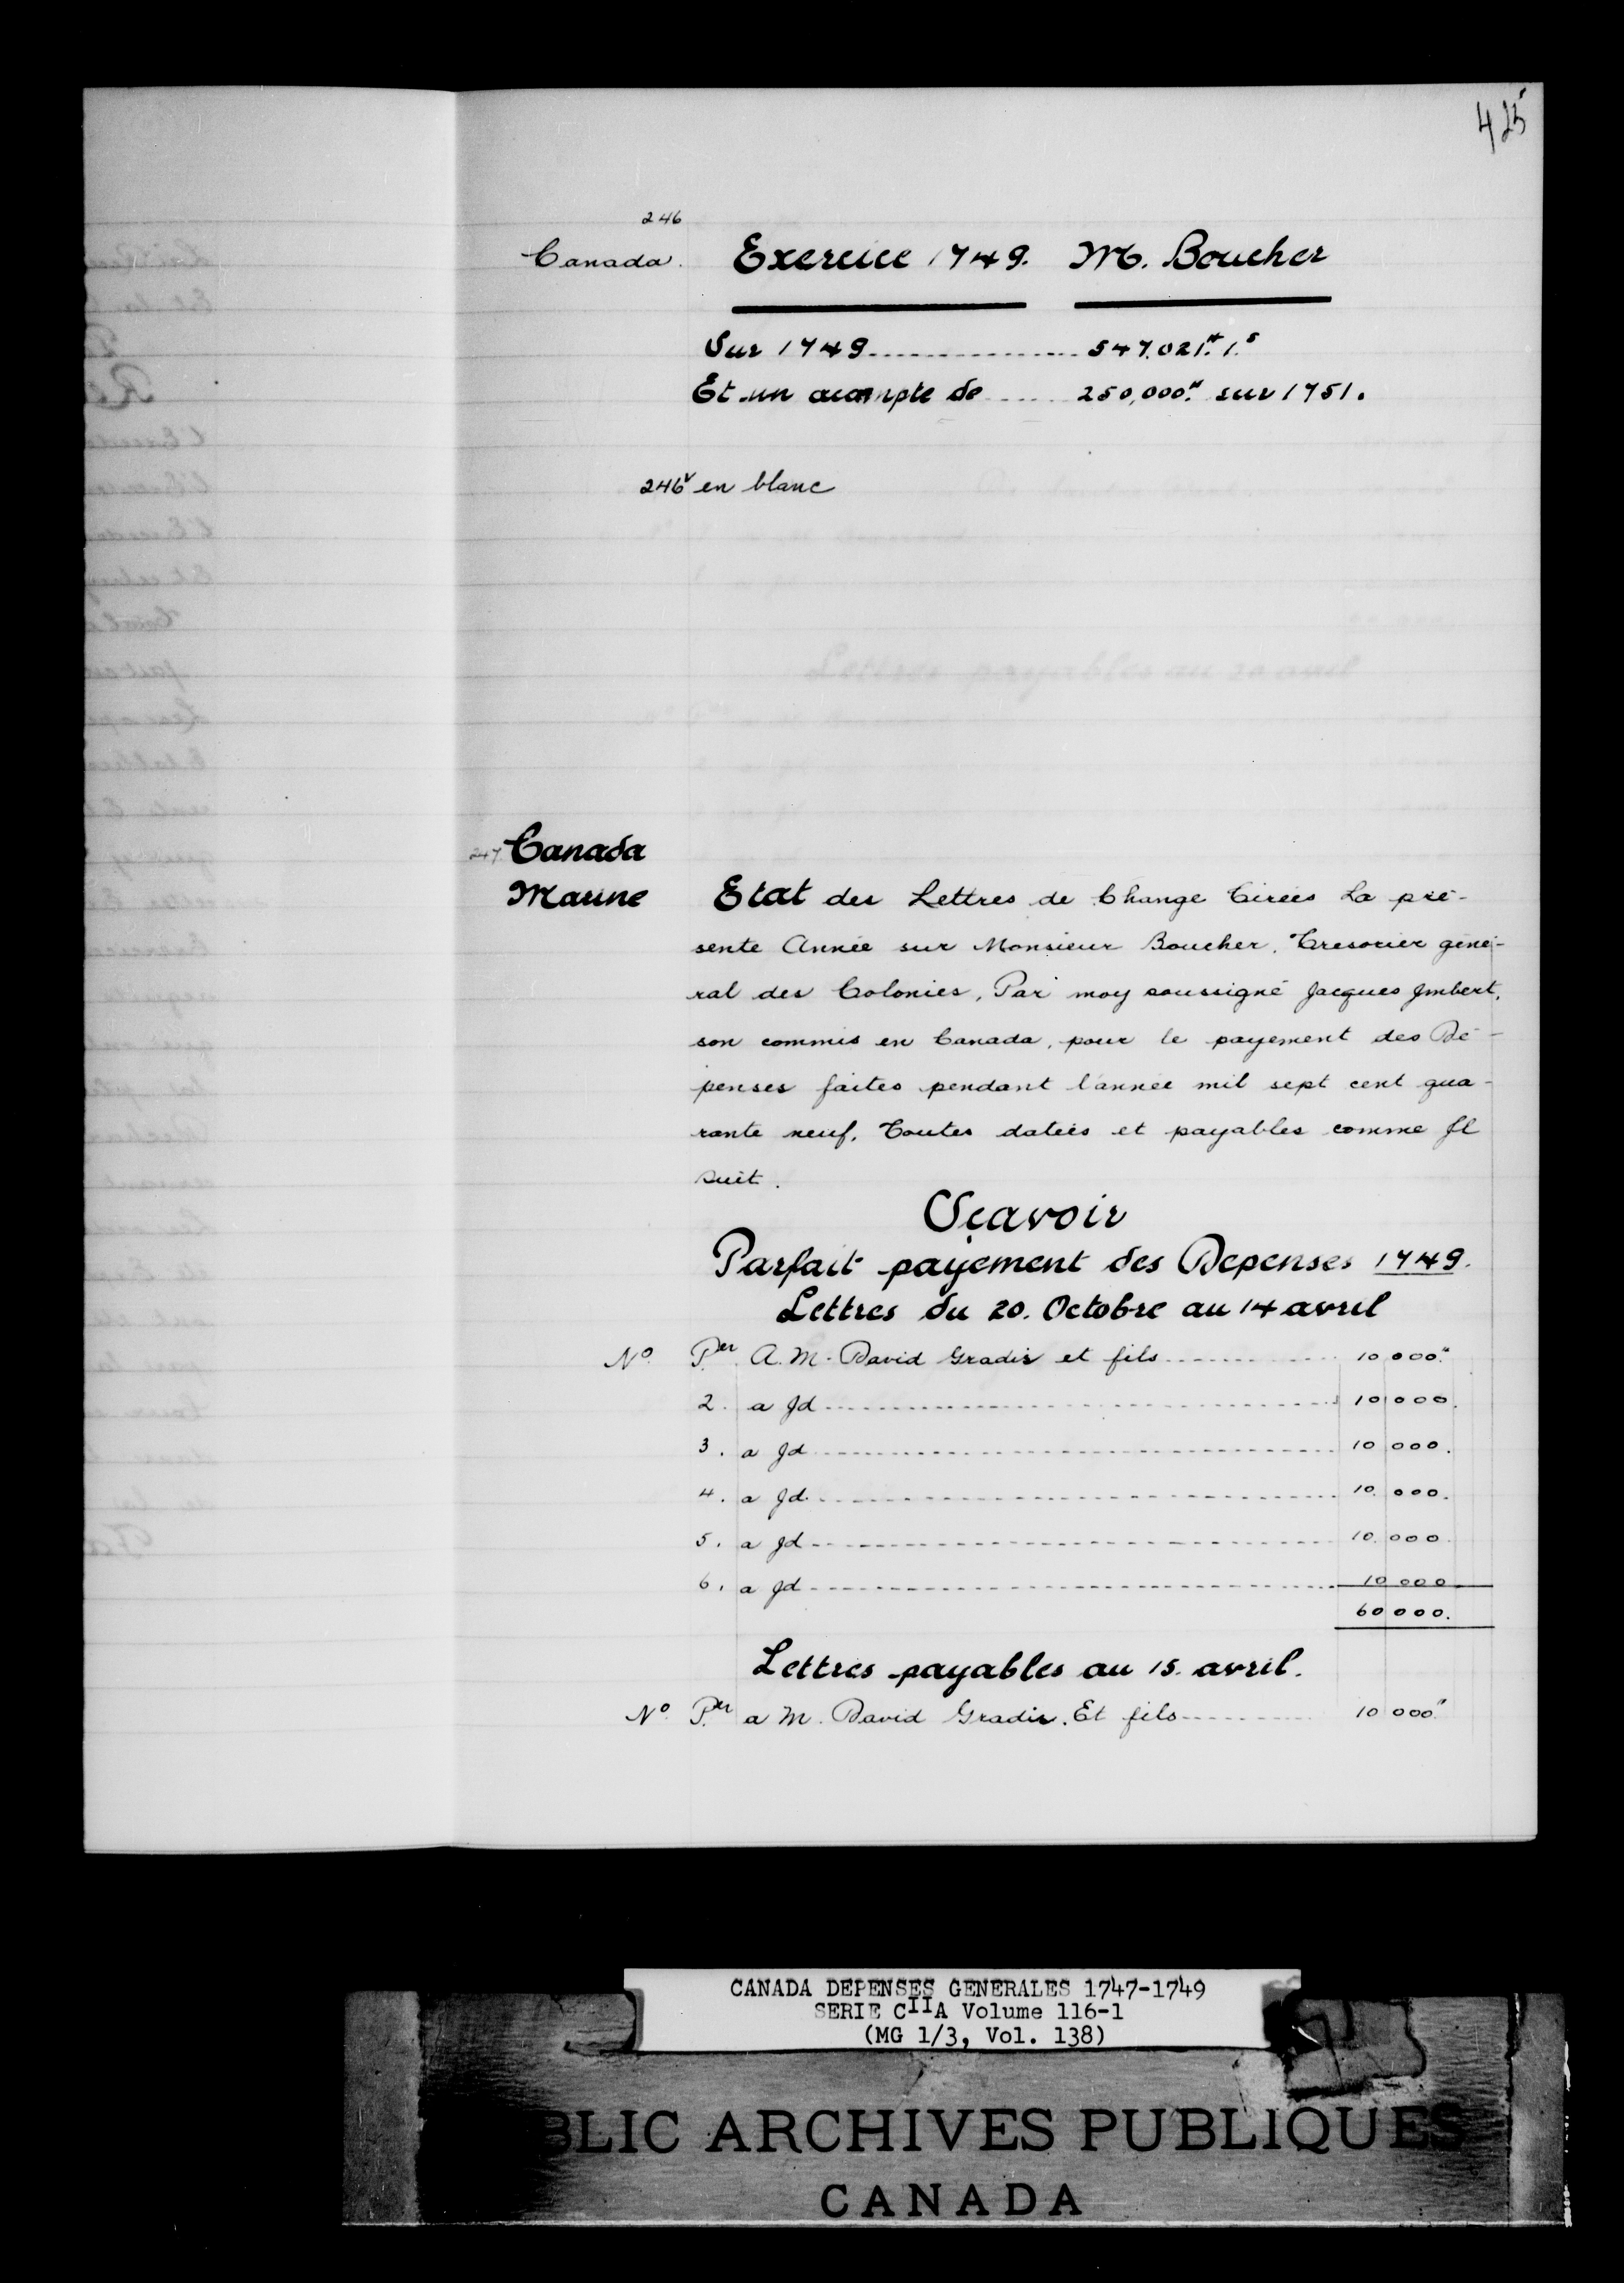 425
246
Canada. Exercice 1749. M. Boucher
Sur 1749 547.021.# 1.s
Et un acompte de 250,000.# sur 1751.
246v en blanc
247 Canada
Marine Etat des Lettres de Change Tirées La pré-
sente Année sur Monsieur Boucher. Tresorier géné-
ral des Colonies, Par moy soussigné Jacques Jmbert,
son commis en Canada, pour le payement des Dé-
penses faites pendant l'année mil sept cent qua-
rante neuf. Toutes datées et payables comme Jl
suit.
Sçavoir
Parfait payement des Depenses 1749.
Lettres du 20. Octobre au 14 avril
No. P.er A. M. David Gradis et fils 10 000.#
2. a Jd 10 000.
3. a Jd 10 000.
4. a Jd. 10. 000.
5. a Jd 10. 000.
6. a Jd 10 000
60 000.
Lettres payables au 15. avril.
No. P.er a M. David Gradis. Et fils 10 000.#
CANADA DEPENSES GENERALES 1747-1749
SERIE CIIA Volume 116-1
(MG 1/3, Vol. 138)
BLIC ARCHIVES PUBLIQUES
CANADA